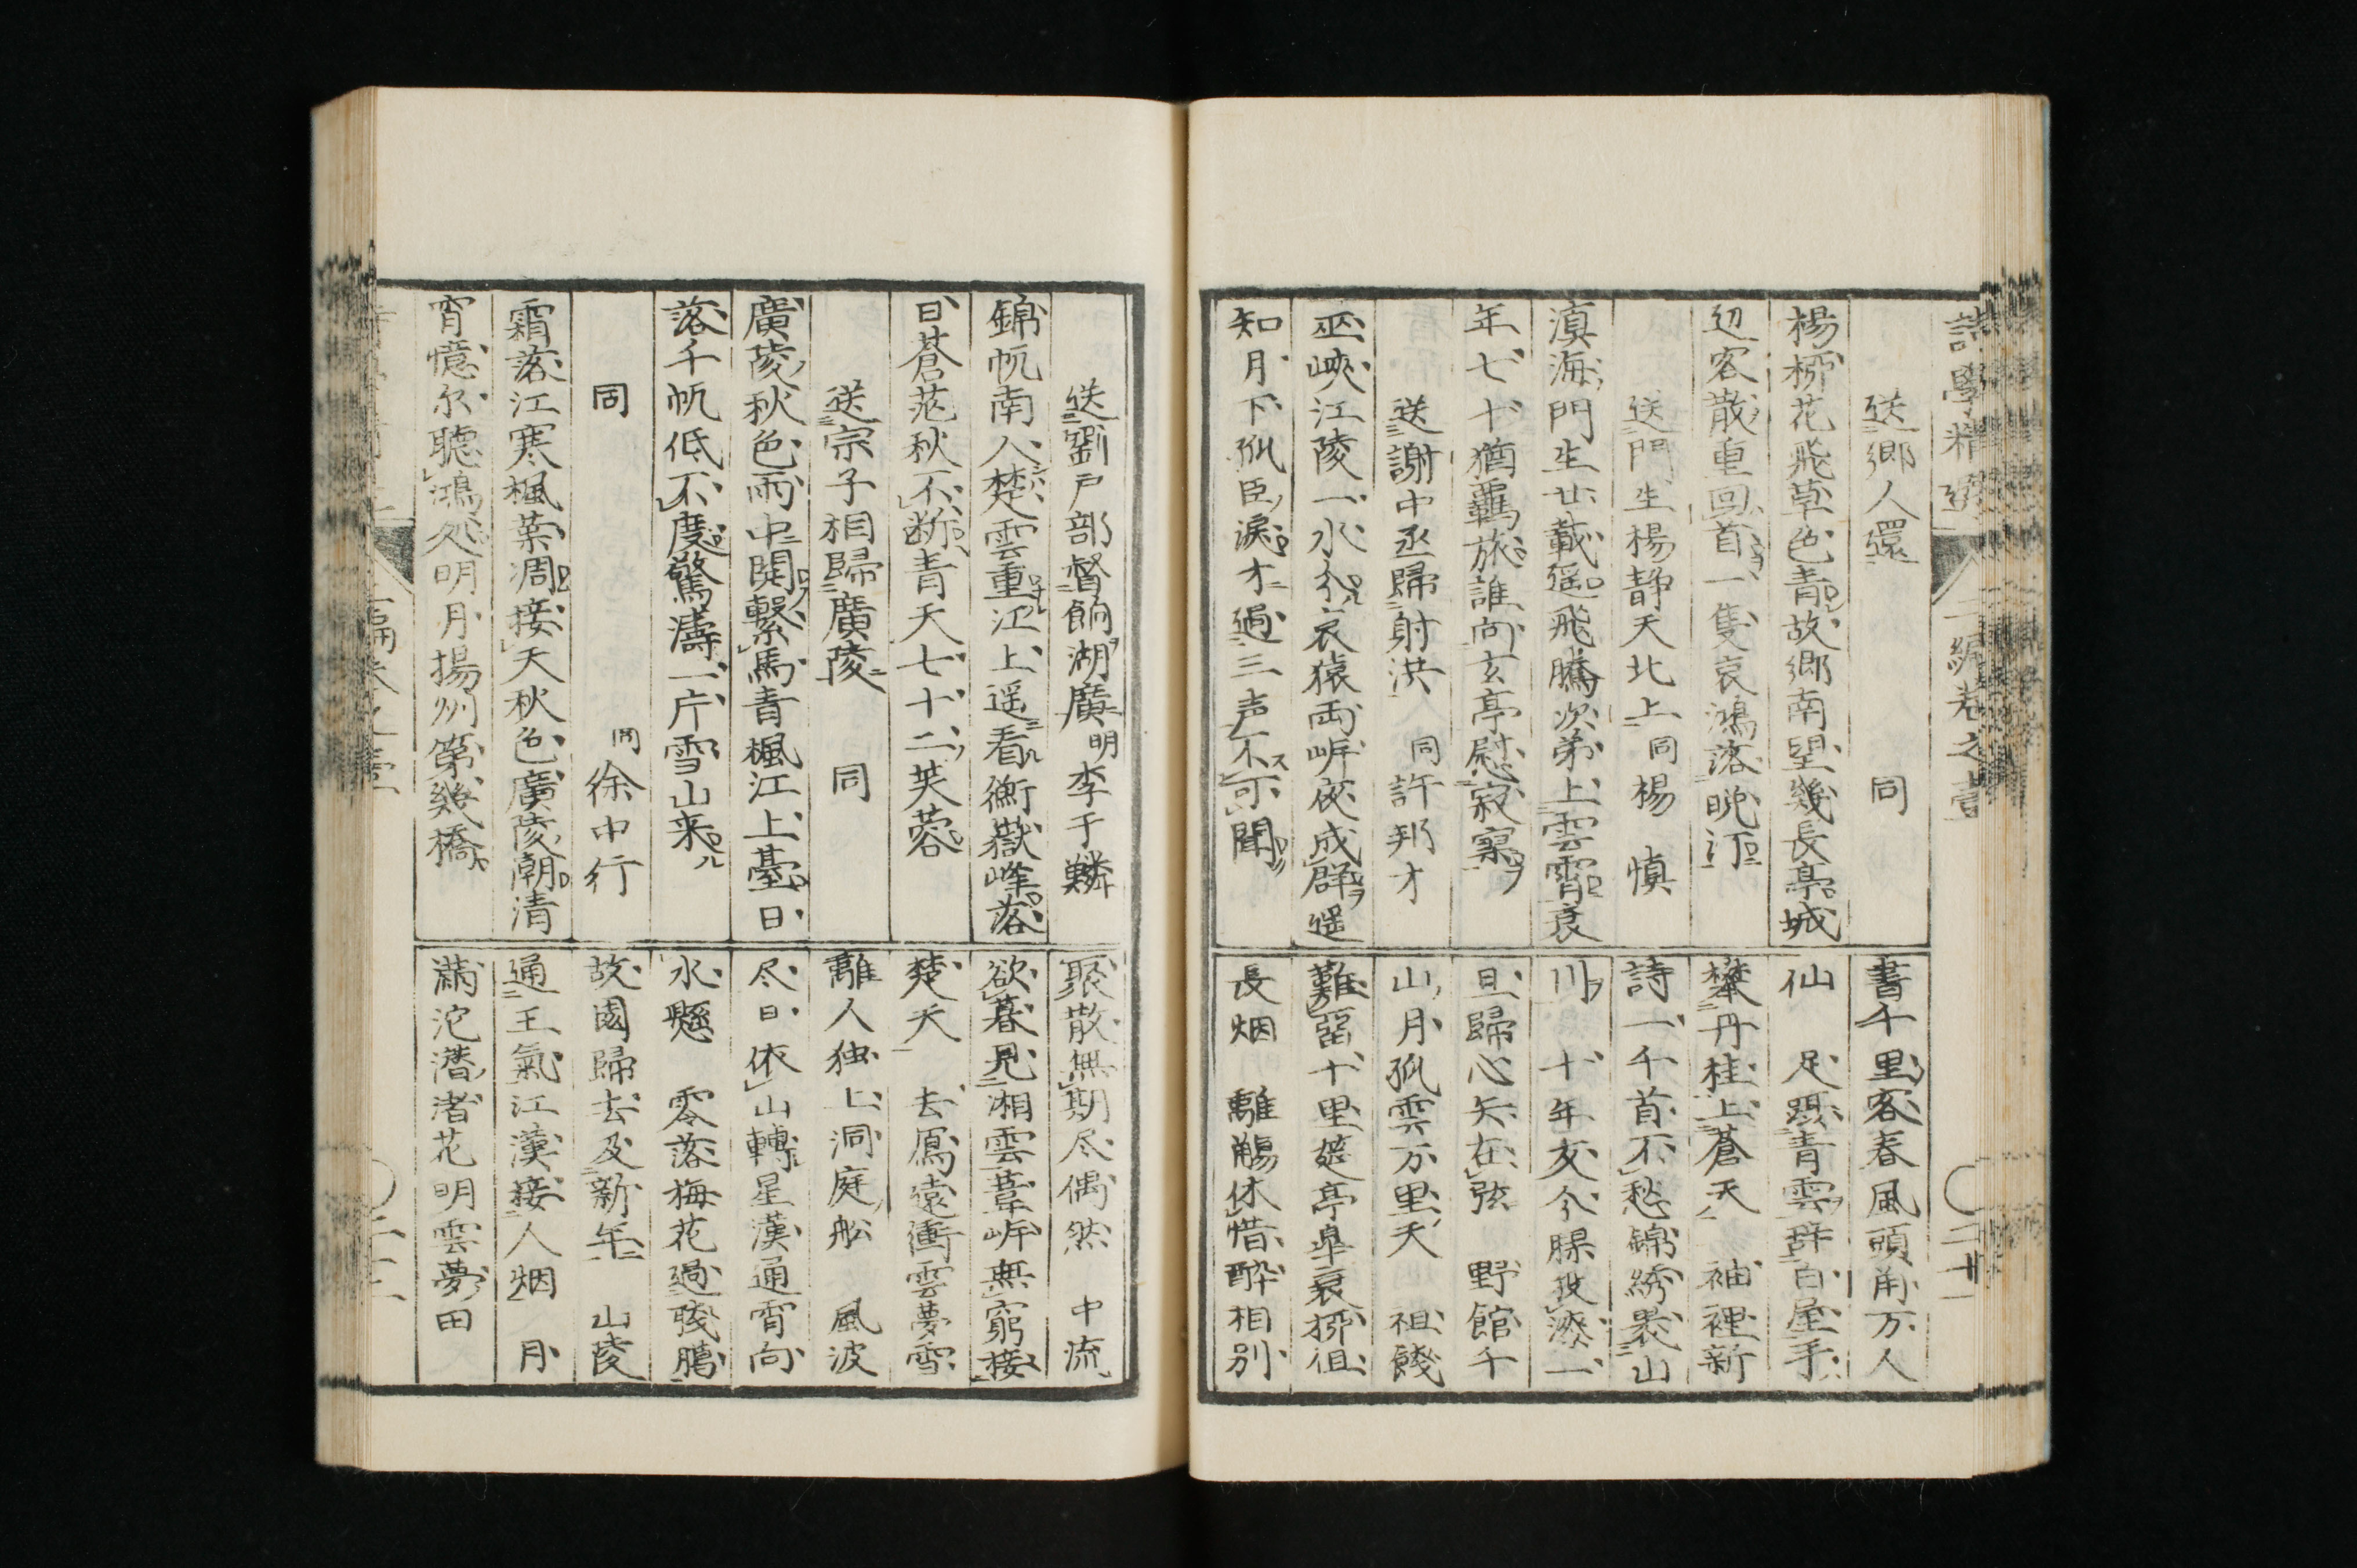 送郷人還 同
楊柳花飛草色青故郷南望幾長亭城
辺客散重回首一隻哀鴻落晩汀
送門生楊静夫北上 同楊 慎
滇海門生廿載遥飛騰次第上雲霄衰
年七十猶羈旅誰向玄亭慰寂寞
送謝中丞歸射洪 同許邦才
巫峽江陵一水分哀猿両岸夜成群遥
知月下孤臣涙才過三声不可聞
書千里客春風頭角万人
仙 足躡青雲辞白屋手
攀丹桂上蒼天 袖裡新
詩一千首不愁錦綉裹山
川 十年友今膠投漆一
旦歸心矢在弦 野館千
山月孤雲万里天 祖餞
難留十里筵亭皐衰柳徂
長烟 離觴休惜酔相別
送劉戸部督餉湖廣 明李于鱗
錦帆南入楚雲重江上遥看衡嶽峰落
日蒼茫秋不断青天七十二芙蓉
送宗子相歸廣陵 同
廣陵秋色雨中開繫馬青楓江上臺日
落千帆低不度驚濤一片雪山来
同 同徐中行
霜落江寒楓葉凋接天秋色廣陵潮清
宵憶尓聴鴻処明月揚州第幾橋
聚散無期尽偶然 中流
欲暮見湘雲葦岸無窮接
楚天 去鳫遠衝雲夢雪
離人独上洞庭舩 風波
尽日依山轉星漢通宵向
水懸 零落梅花過残臈
故園歸去及新年 山陵
通王氣江漢接人烟 月
満沱潜渚花明雲夢田
詩學精選 二編卷之壹 二十一